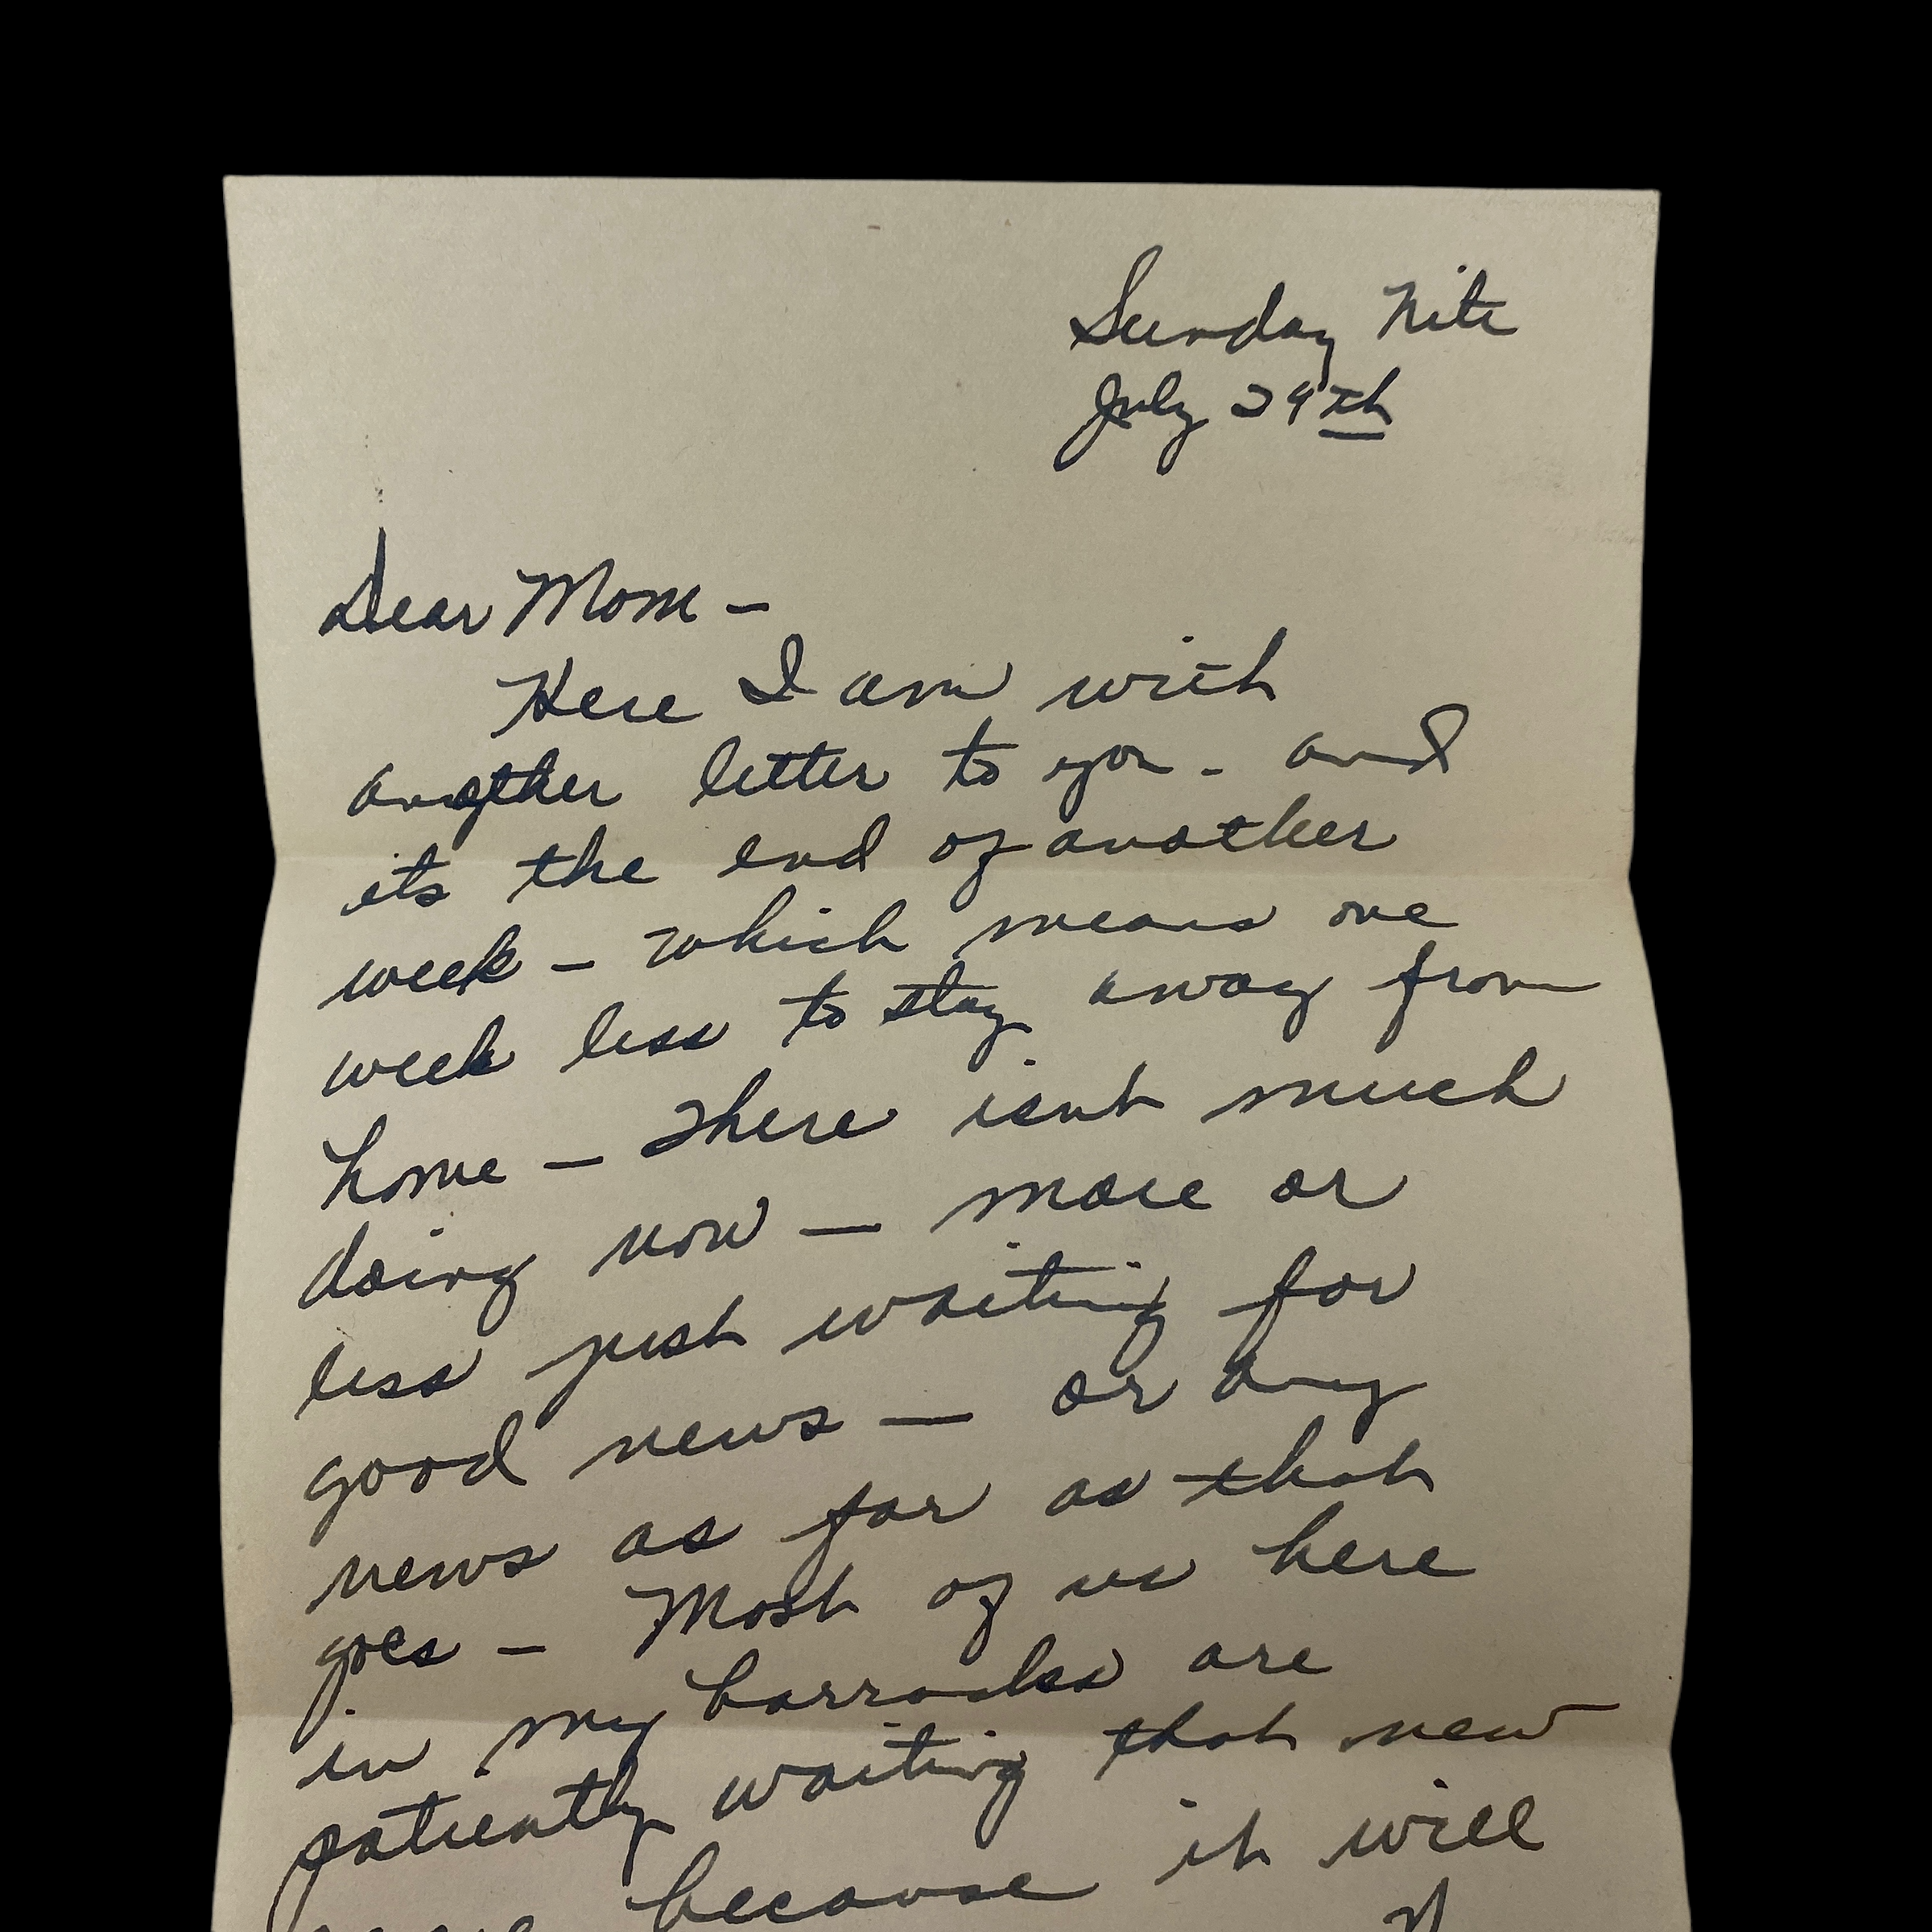 Sunday Nite
July 29th
Dear Mom –
Here I am with
another letter to you - and
its the end of another
week – which means one
week less to stay away from
home – There isnt much
doing now – more or
less just waiting for
good news – or any
news as far as that
goes – Most of us here
in my barracks are
patiently waiting that new
because it will